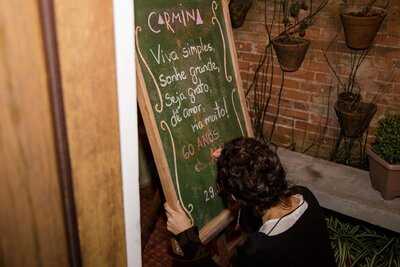 CARMINA
Viva simples,
sonhe grande,
Seja grato,
dê amor,
ria muito!
60 ANOS
29